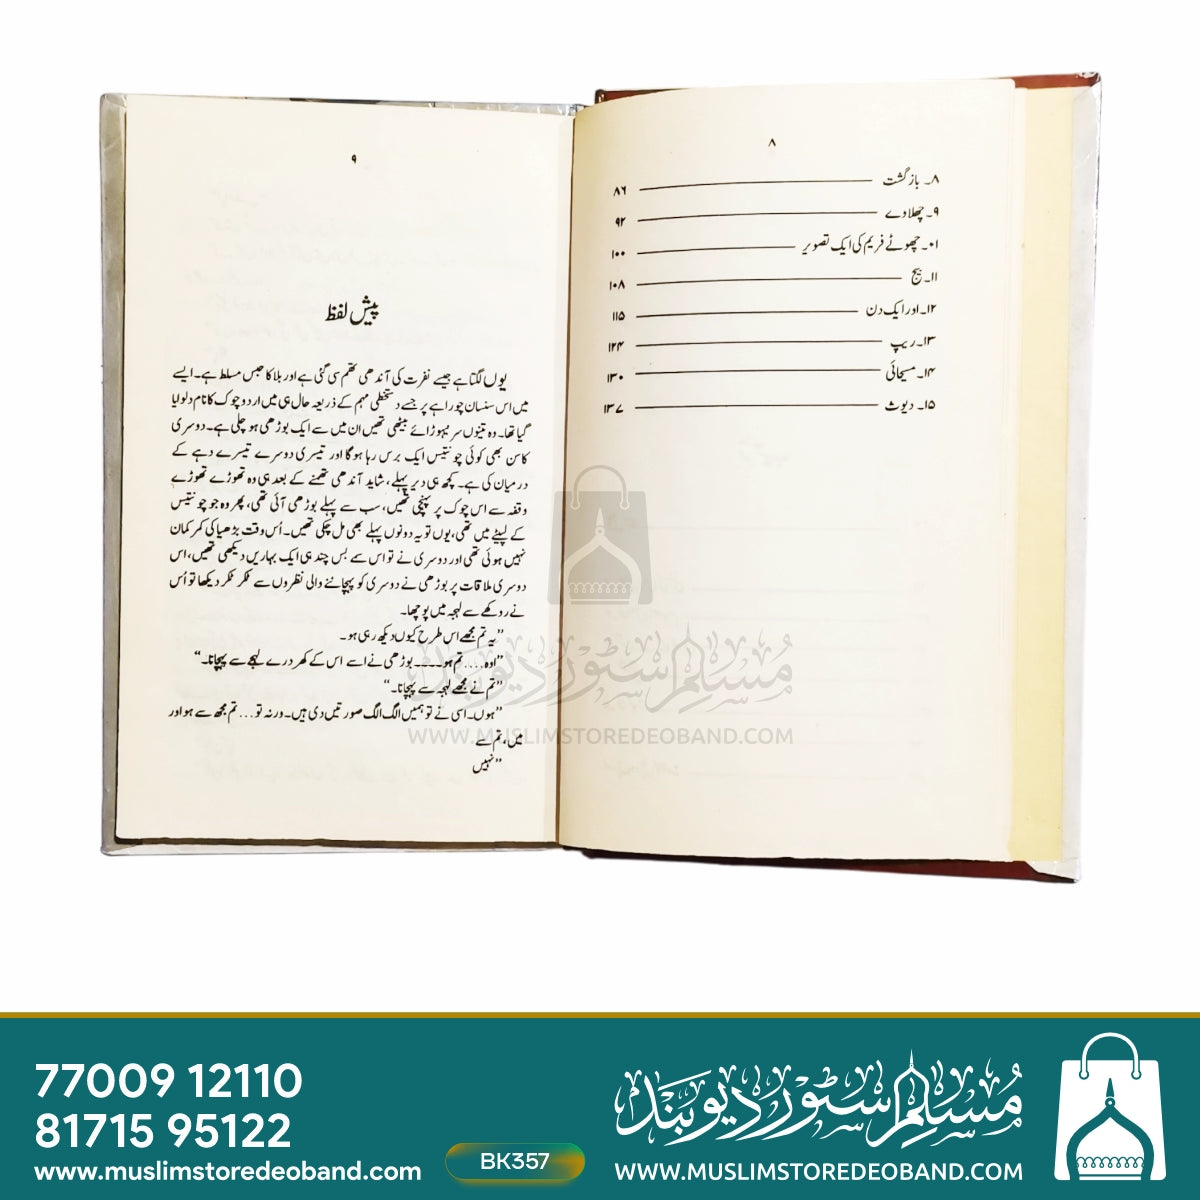 ۸
۸۔ بازگشت ۸۶
۹۔ چھلاوے ۹۲
۱۰۔ چھوٹے فریم کی ایک تصویر ۱۰۰
۱۱۔ بیج ۱۰۸
۱۲۔ اور ایک دن ۱۱۵
۱۳۔ ریپ ۱۲۴
۱۴۔ مسیحائی ۱۳۰
۱۵۔ دیوث ۱۳۷
۹
پیش لفظ
یوں لگتا ہے جیسے نفرت کی آندھی تھم سی گئی ہے اور بلا کا حبس مسلط ہے۔ ایسے
میں اس سنسان چوراہے پر جسے دستخطی مہم کے ذریعہ حال ہی میں اردو چوک کا نام دلوایا
گیا تھا۔ وہ تینوں سر نیہوڑائے بیٹھی تھیں ان میں سے ایک بوڑھی ہو چلی ہے۔ دوسری
کا سن بھی کوئی چونتیس ایک برس رہا ہوگا اور تیسری دوسرے تیسرے دہے کے
درمیان کی ہے۔ کچھ ہی دیر پہلے، شاید آندھی تھمنے کے بعد ہی وہ تھوڑے تھوڑے
وقفہ سے اس چوک پر پہنچی تھیں، سب سے پہلے بوڑھی آئی تھی، پھر وہ جو چونتیس
کے لپیٹے میں تھی، یوں تو یہ دونوں پہلے بھی مل چکی تھیں۔ اُس وقت بڑھیا کی کمر کمان
نہیں ہوئی تھی اور دوسری نے تو اس سے بس چند ہی ایک بہاریں دیکھی تھیں، اس
دوسری ملاقات پر بوڑھی نے دوسری کو پہچاننے والی نظروں سے ٹکر ٹکر دیکھا تو اُس
نے روکھے سے لہجہ میں پوچھا۔
”یہ تم مجھے اس طرح کیوں دیکھ رہی ہو۔
”اوہ..... تم ہو۔۔۔۔ بوڑھی نے اسے اس کے کھردرے لہجے سے پہچانا۔“
”تم نے مجھے لہجہ سے پہچانا۔“
”ہوں۔ اسی نے تو ہمیں الگ الگ صورتیں دی ہیں۔ ورنہ تو... تم مجھ سے ہو اور
میں، تم سے
”نہیں
مسلم سٹور دیوبند
WWW.MUSLIMSTOREDEOBAND.COM
77009 12110
81715 95122
www.muslimstoredeoband.com
BK357
مسلم سٹور دیوبند
WWW.MUSLIMSTOREDEOBAND.COM